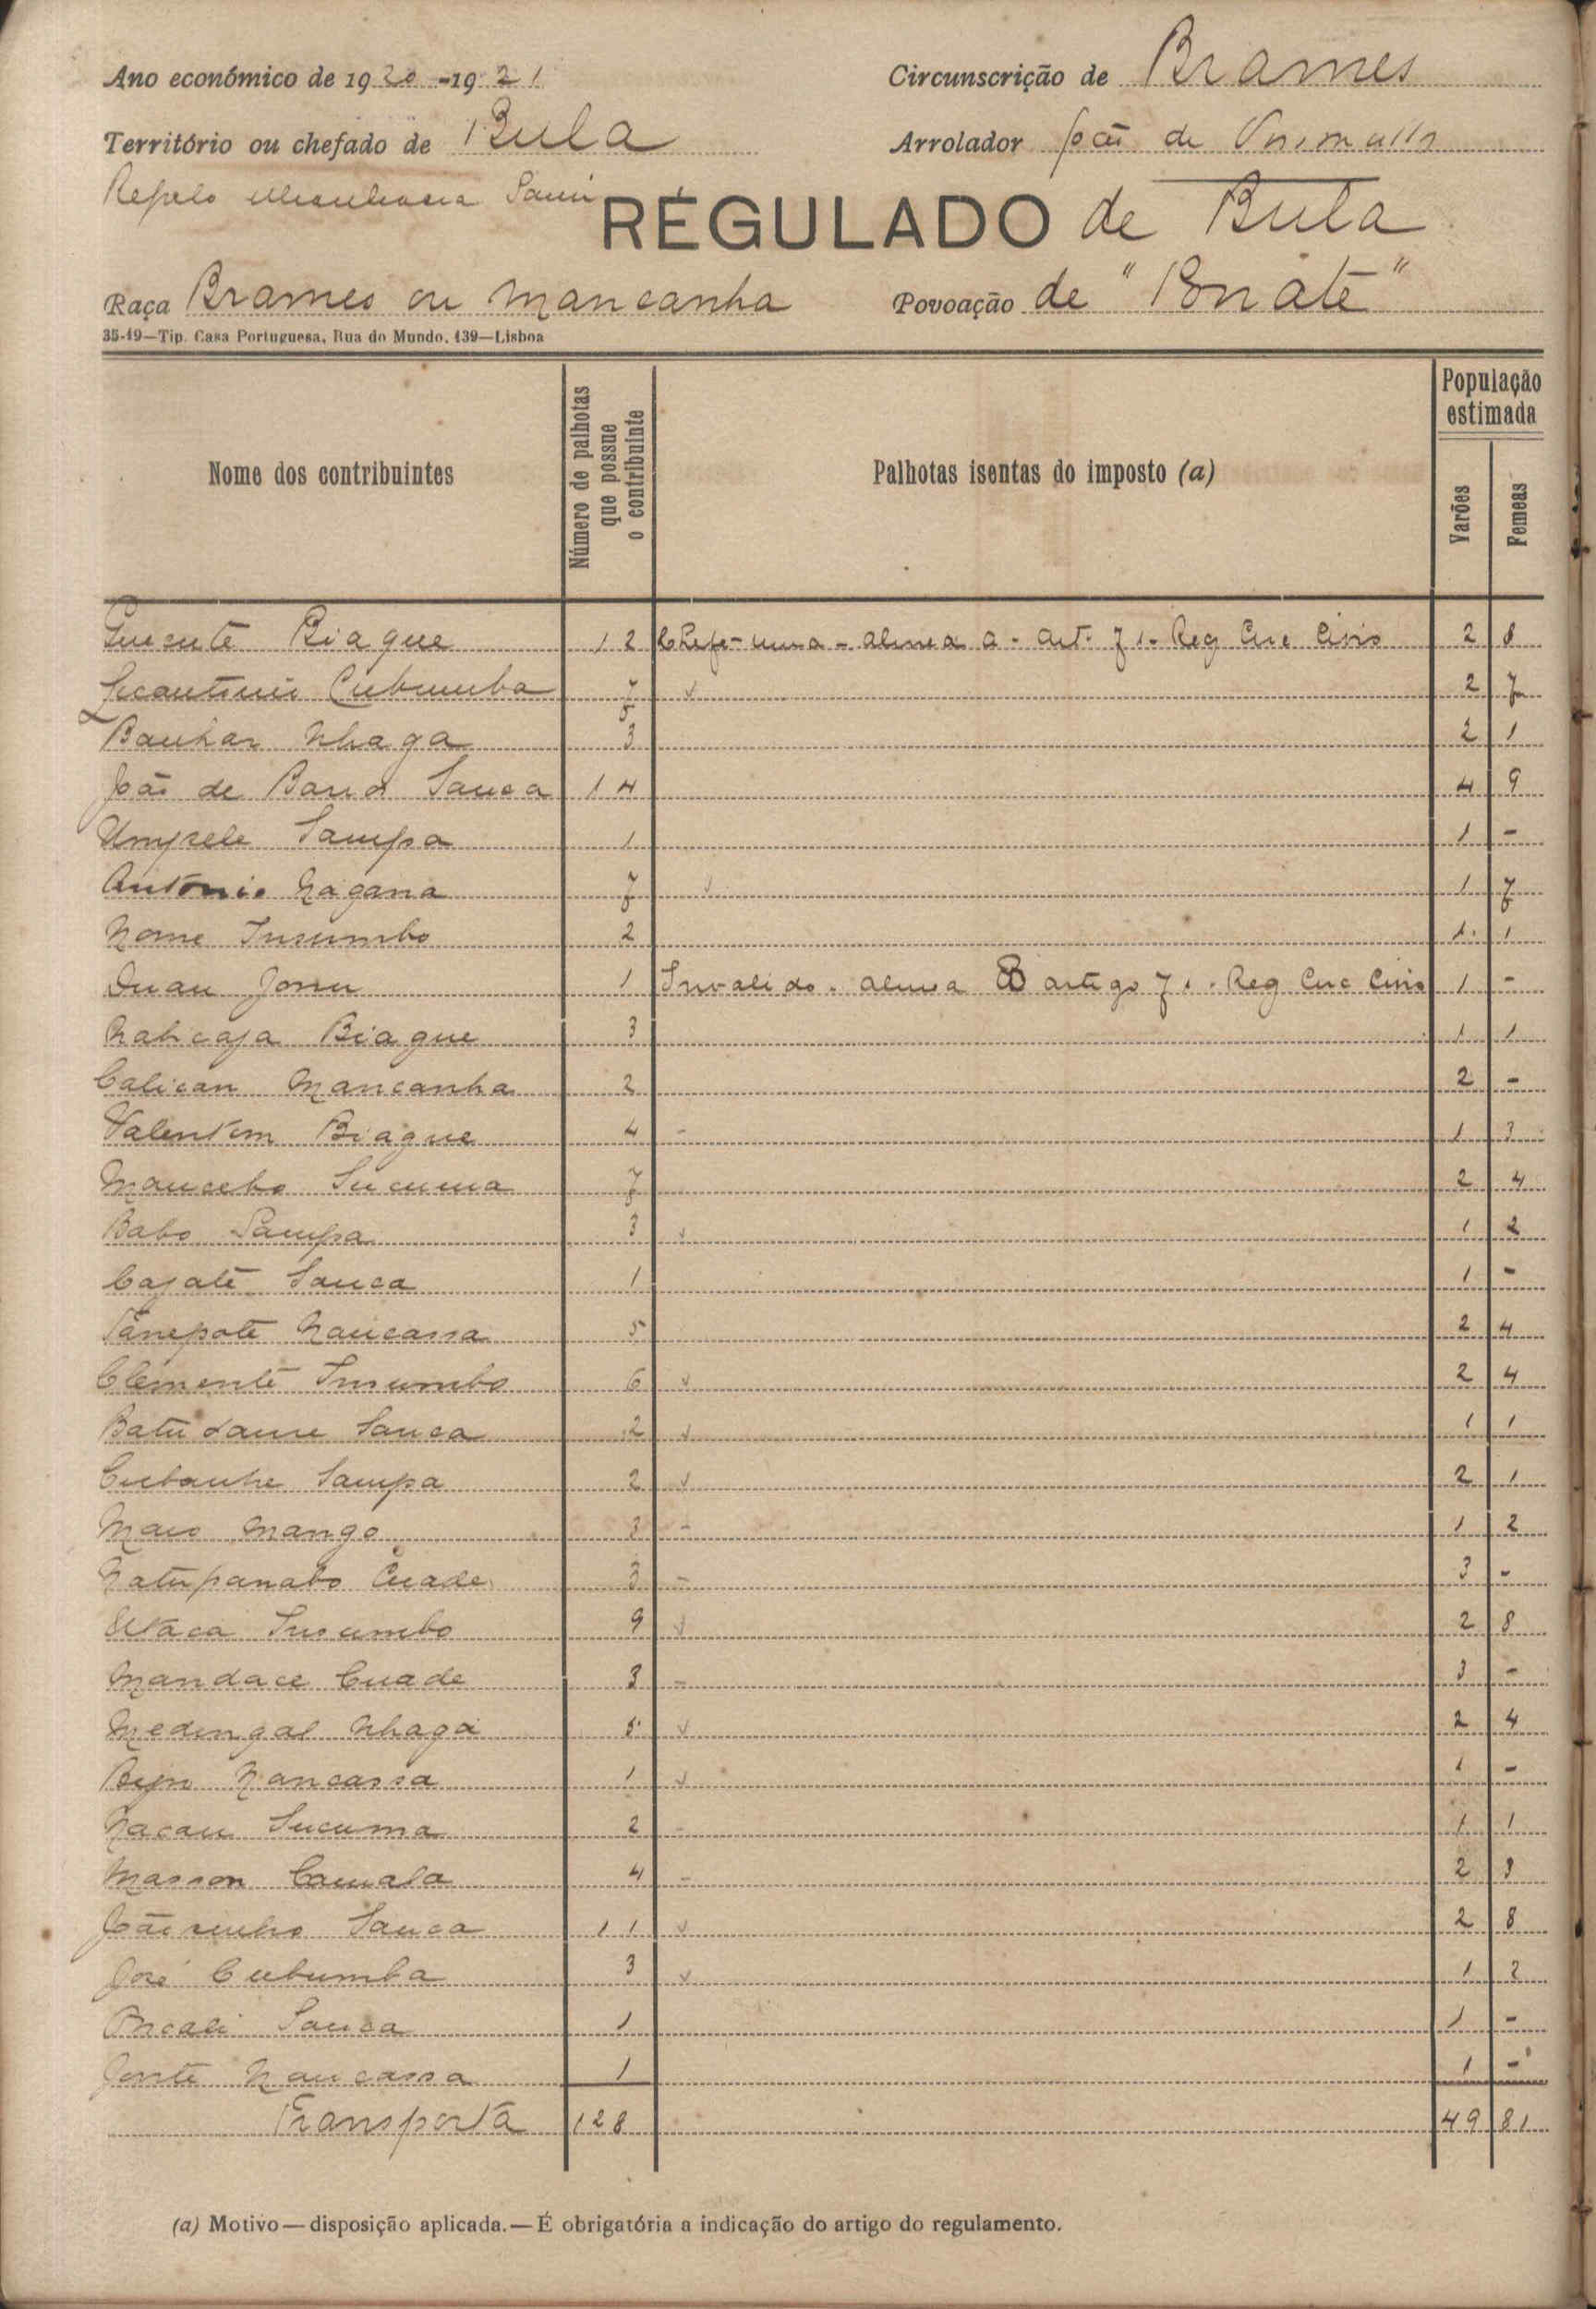 Ano económico de 1920-1921
Circunscrição de Brames
Território ou chefado de Bula
Arrolador João de
RÉGULADO de Bula
Raça Brames ou Mancanha
Povoação de "Bnate"
35-19—Tip. Casa Portuguesa, Rua do Mundo, 139—Lisboa
Nome dos contribuintes
Número de palhotas que possue o contribuinte
Palhotas isentas do imposto (a)
População estimada
Varões
Femeas
Biague 12 Chefe - uma - alinea a - art. 71 - Reg Circ Civis 2 8
Cubumba 7 2 7
Nhaga 3 2 1
João de Barros Sanca 14 4 9
Sampa 1 1 -
Antonio Nagana 7 1 7
Nome Insumbo 2 1 1
1 Invalido - alinea B artigo 71 - Reg Circ Civis 1 -
Biague 3 1 1
Calican Mancanha 2 2 -
Valentim Biague 4 - 1 3
Mancebo Sucuma 7 2 4
Babo Sampa 3 1 2
Cajatê Sanca 1 1 -
Nancassa 5 2 4
Clemente Insumbo 6 2 4
Sanca 2 1 1
Sampa 2 2 1
Maio Mango 3 - 1 2
Natupanabo Cuade 3 - 3 -
Insumbo 9 2 8
Mandace Cuade 3 - 3 -
Medingal Nhaga 5 2 4
Nancassa 1 1 -
Nacau Sucuma 2 - 1 1
Masson Camala 4 - 2 3
Joãosinho Sanca 11 2 8
José Cubumba 3 1 2
Sanca 1 1 -
Nancassa 1 1 -
Transporta 128 49 81
(a) Motivo—disposição aplicada.—É obrigatória a indicação do artigo do regulamento.